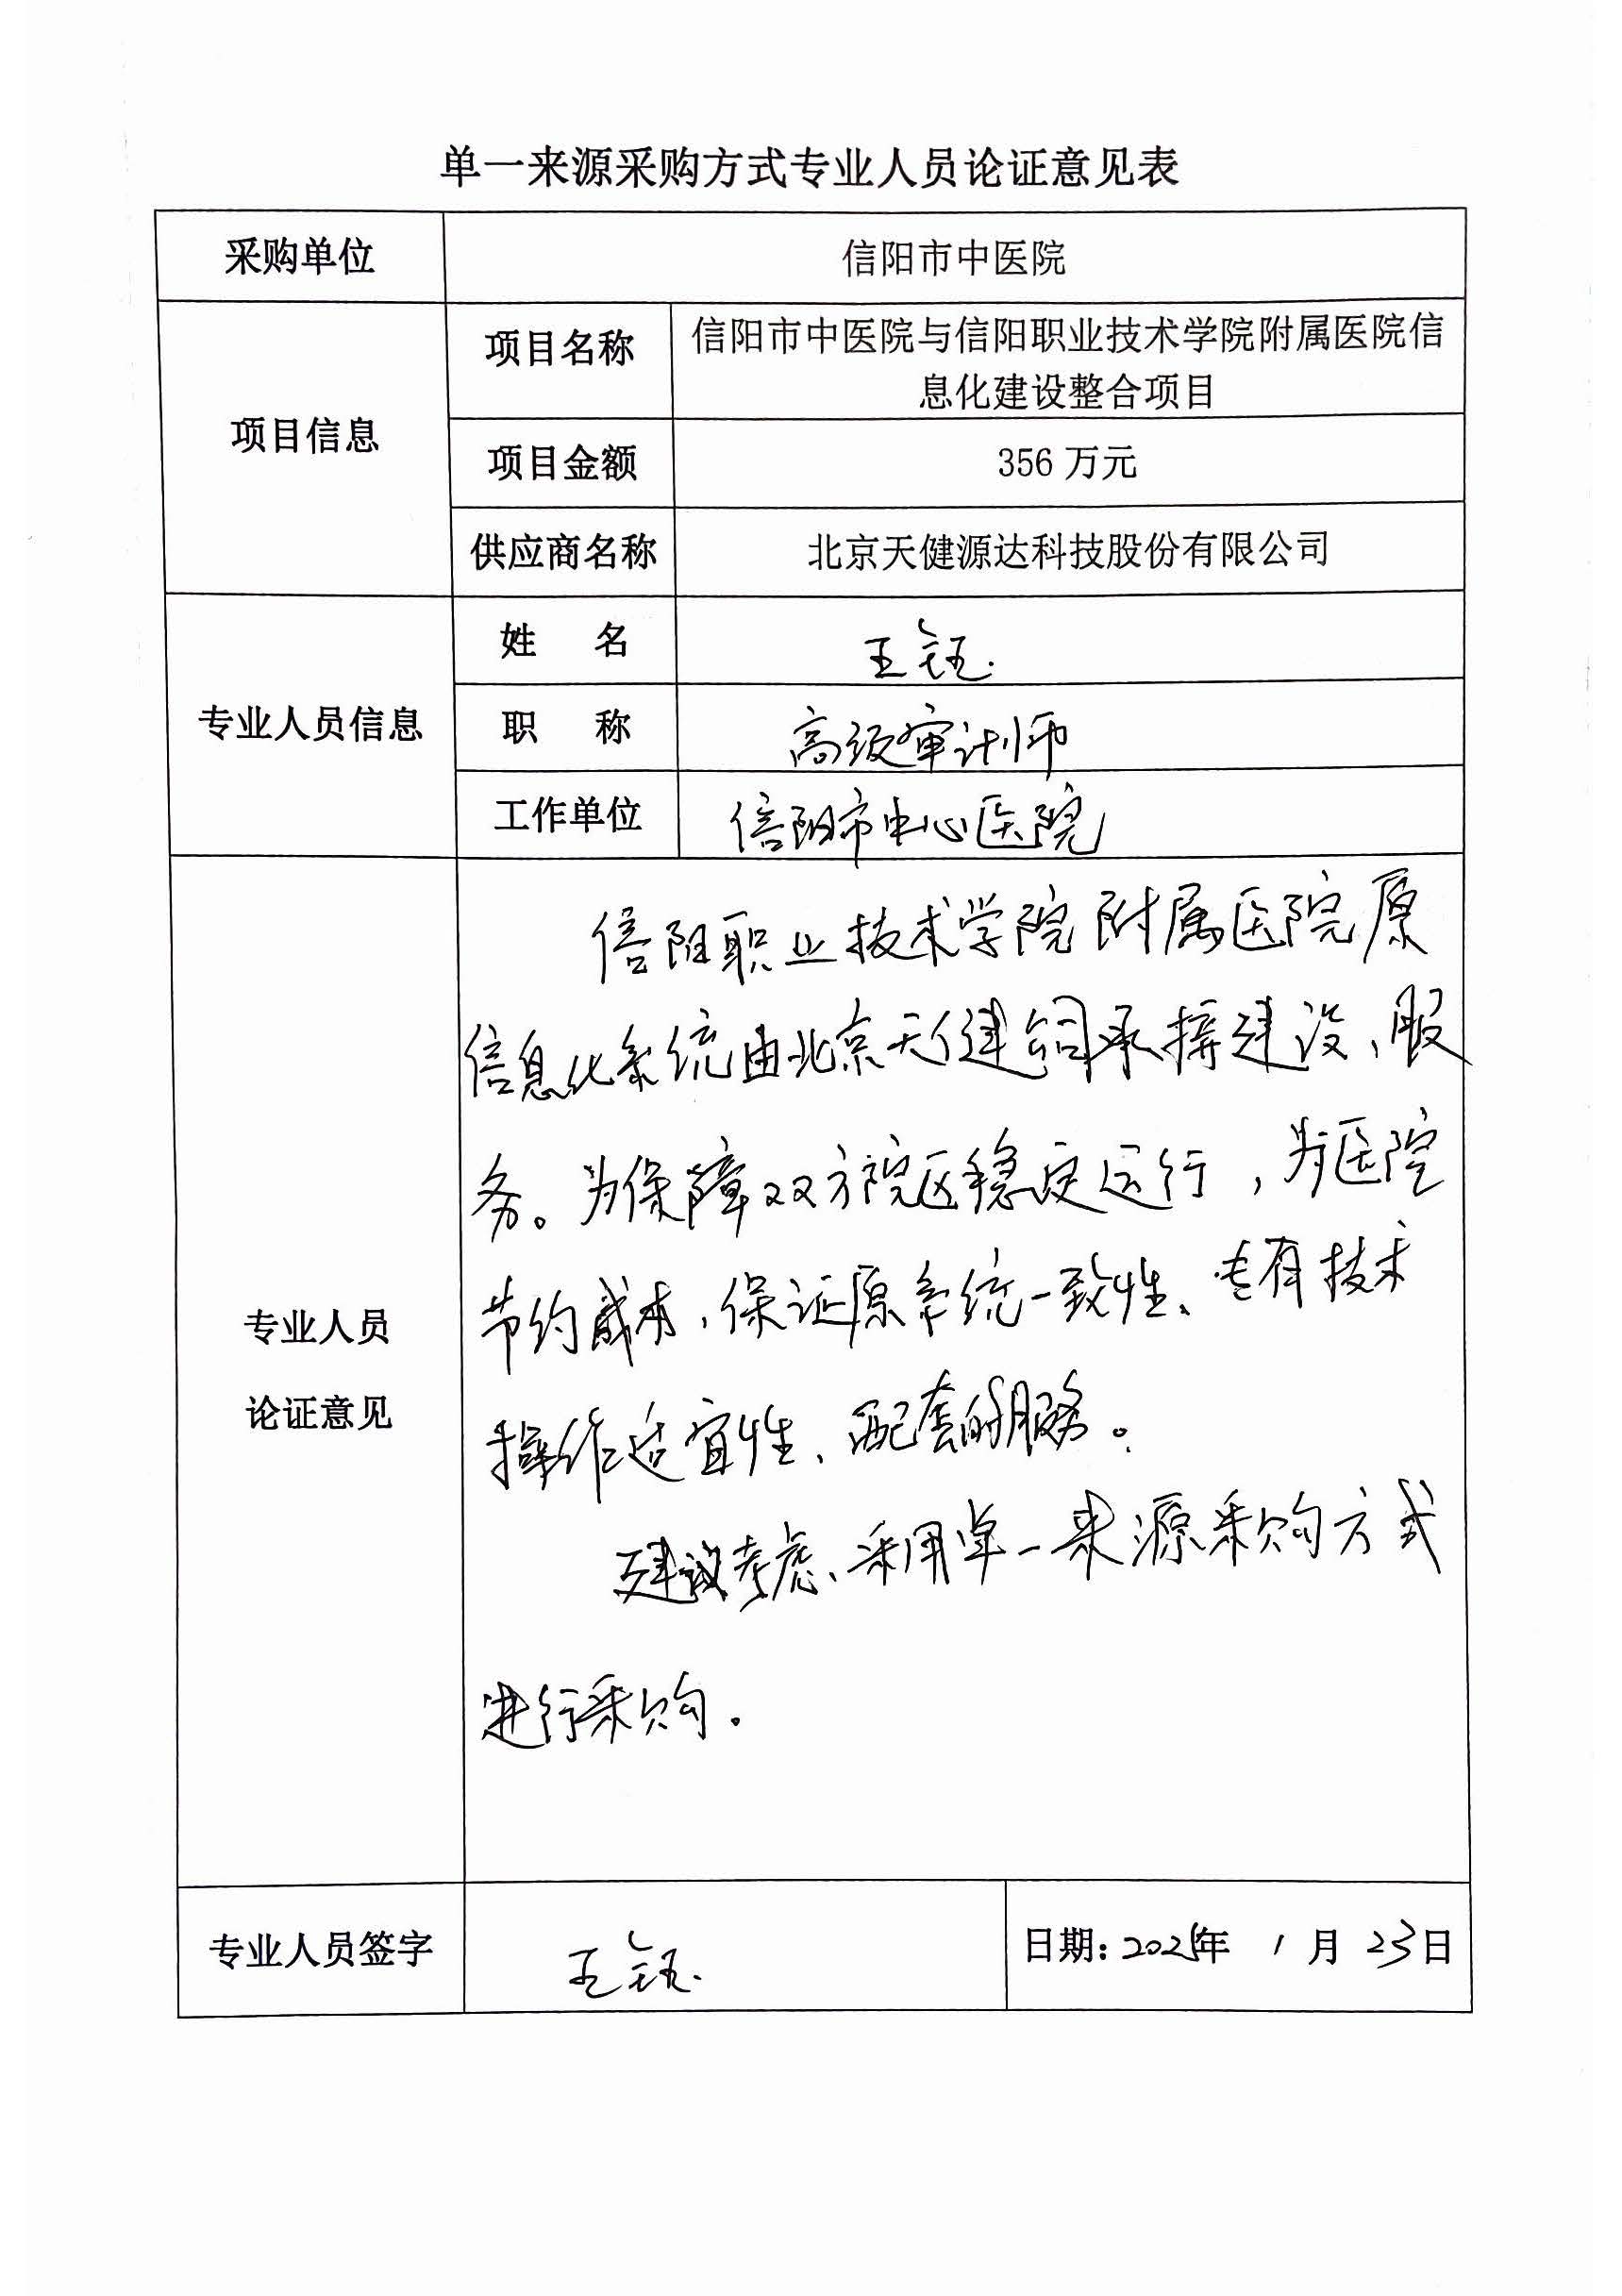 单一来源采购方式专业人员论证意见表
采购单位 信阳市中医院
项目信息
项目名称 信阳市中医院与信阳职业技术学院附属医院信
息化建设整合项目
项目金额 356 万元
供应商名称 北京天健源达科技股份有限公司
专业人员信息
姓 名 王钰
职 称 高级审计师
工作单位 信阳市中心医院
专业人员
论证意见
信阳职业技术学院附属医院原
信息化系统由北京天健公司承接建设、服
务。为保障双方院区稳定运行，为医院
节约成本，保证原系统一致性、专有技术
操作适宜性、配套的服务。
建议考虑、采用单一来源采购方式
进行采购.
专业人员签字 王钰 日期：2025年 1 月 23日